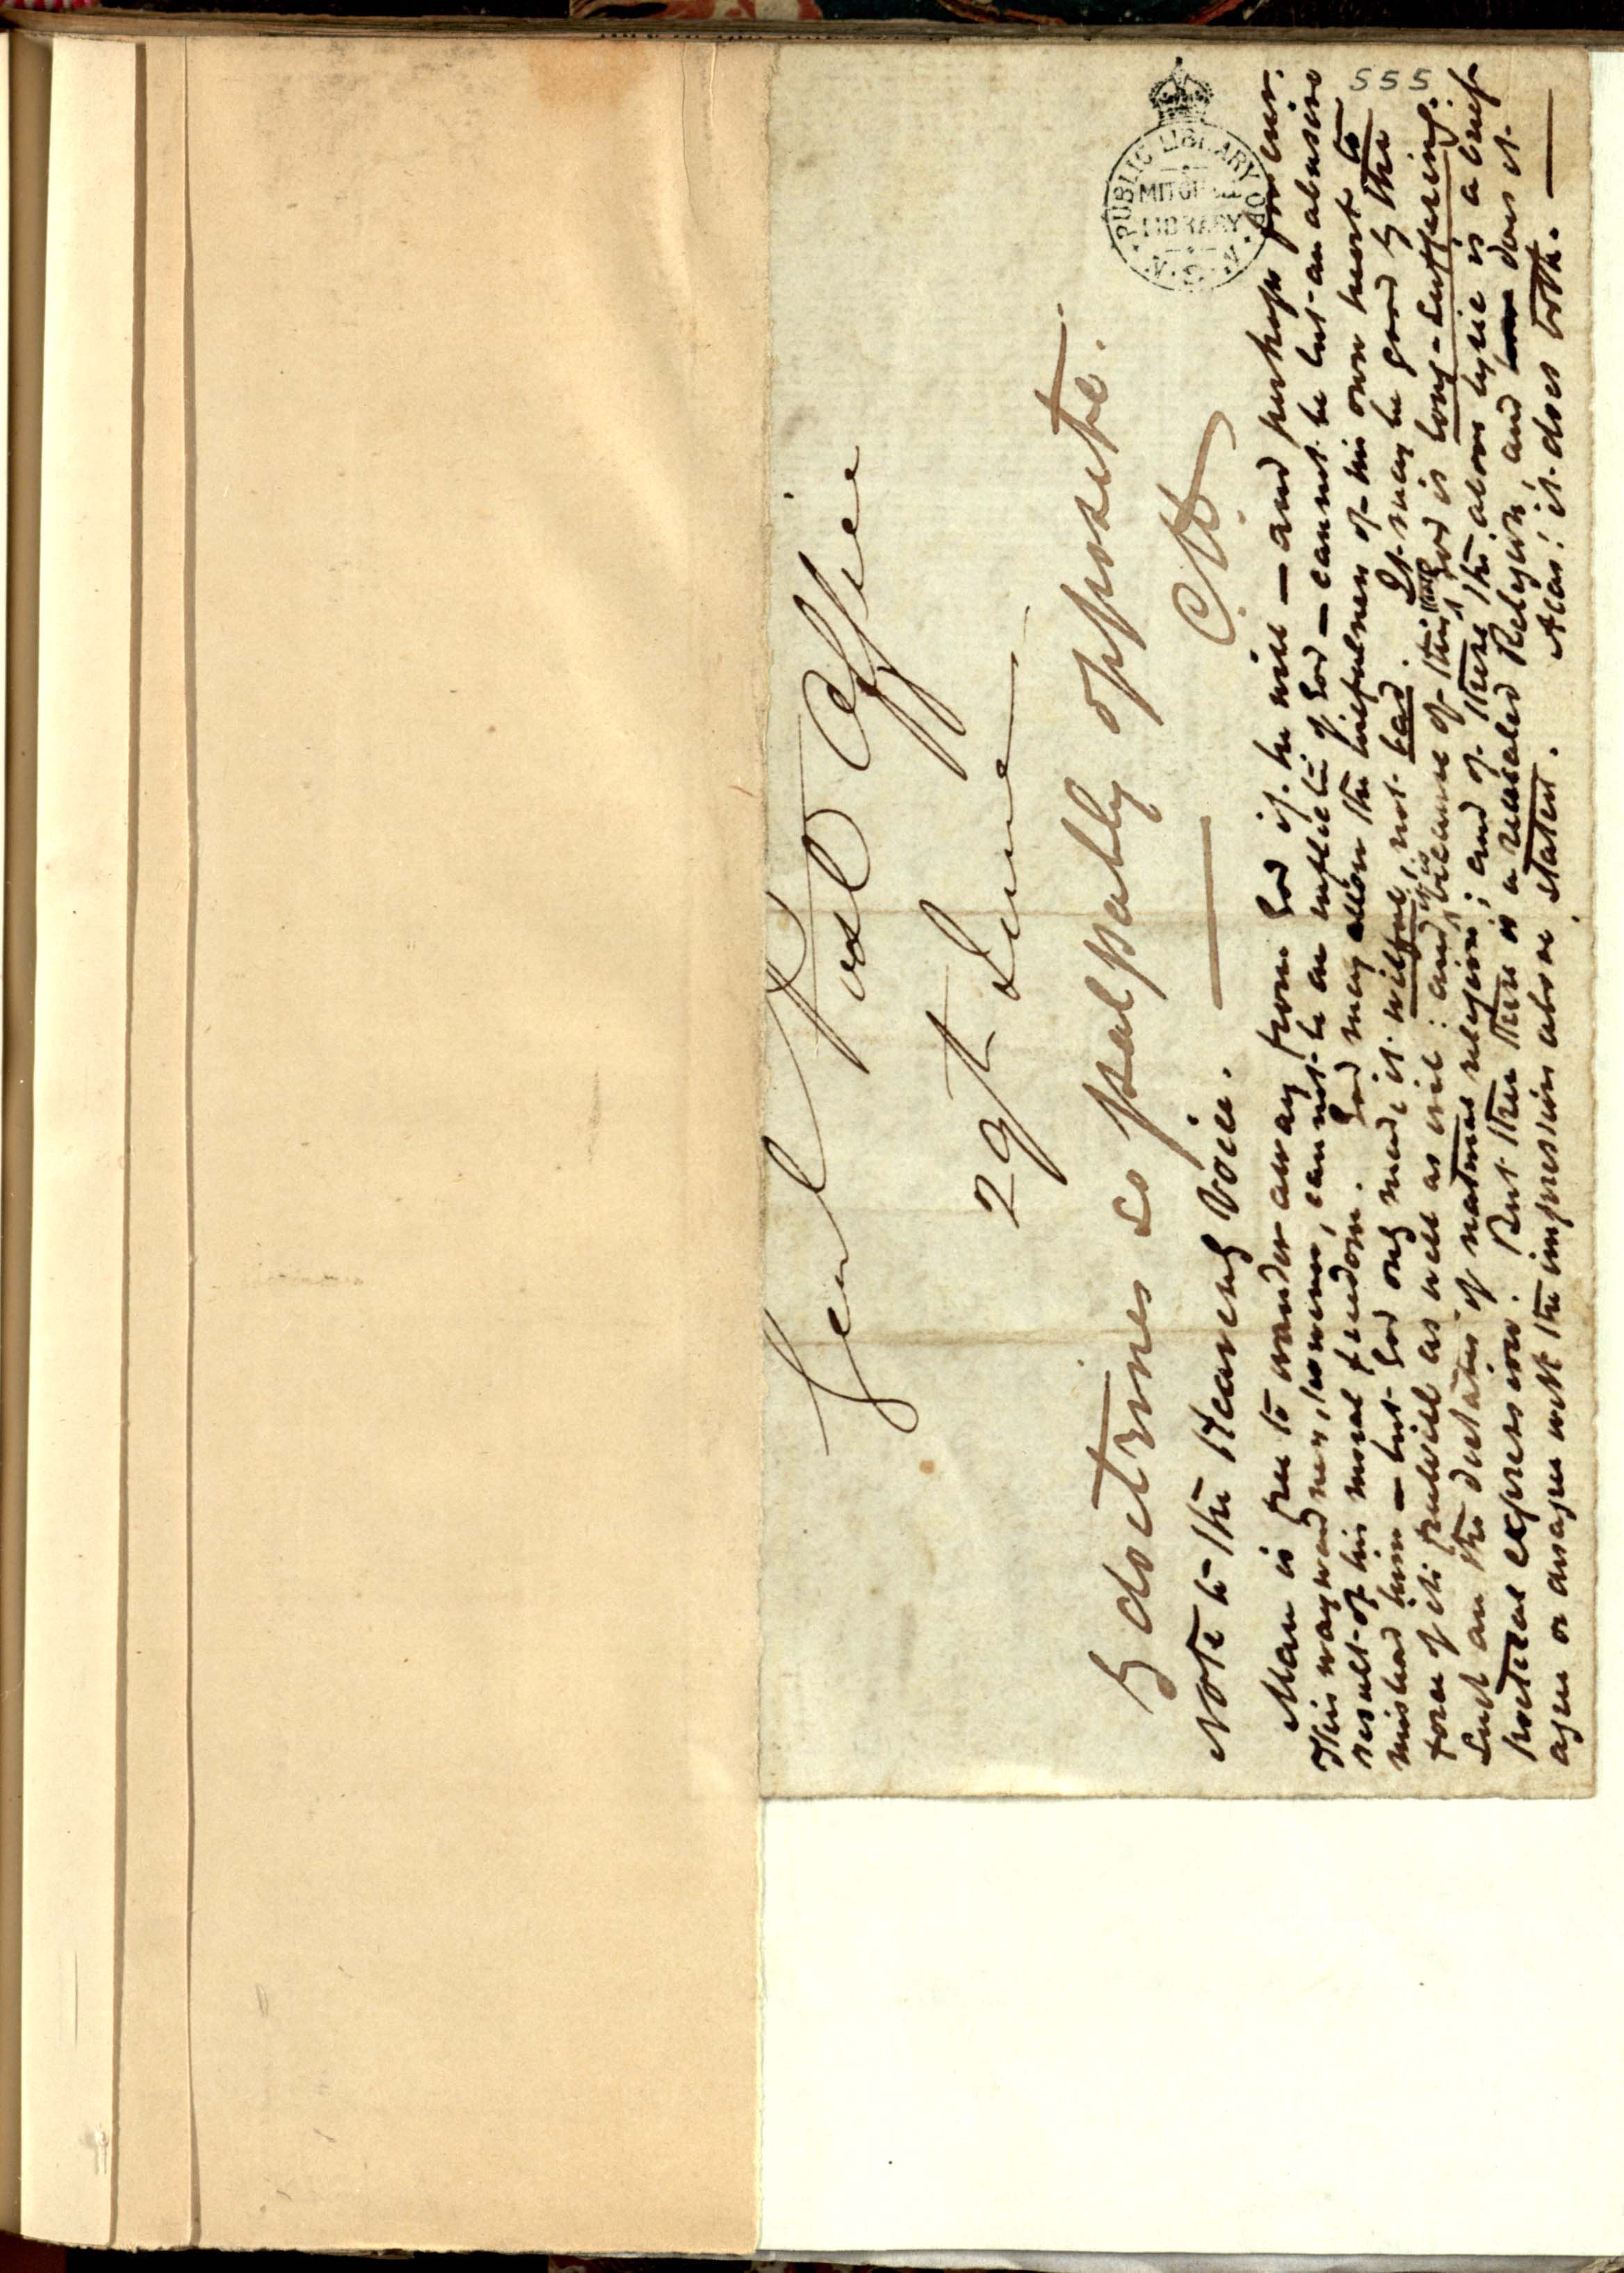 555
Genl Post Office
29th June
PUBLIC LIBRARY OF N.S.W.
MITCHELL
LIBRARY
doctrines so palpably opposite.
C. H.
Note to the Heavenly Voice.
Man is free to wander away from God if he will — and perhaps for ever.
This waywardness, however, cannot be an infliction of God — cannot be but an abusive
result of his moral freedom. God may allow the wilfulness of his own heart to
mislead him — but God only made it wilful, not bad. It may be good by the
force of its freewill as well as evil: and it is because of this that God is long-suffering.
Such are the dictates of natural religion; and of these the above lyric is a brief
poetical expression. But then there is a revealed Religion, and does it
agree or disagree with the impression above stated. Alas! it does both.